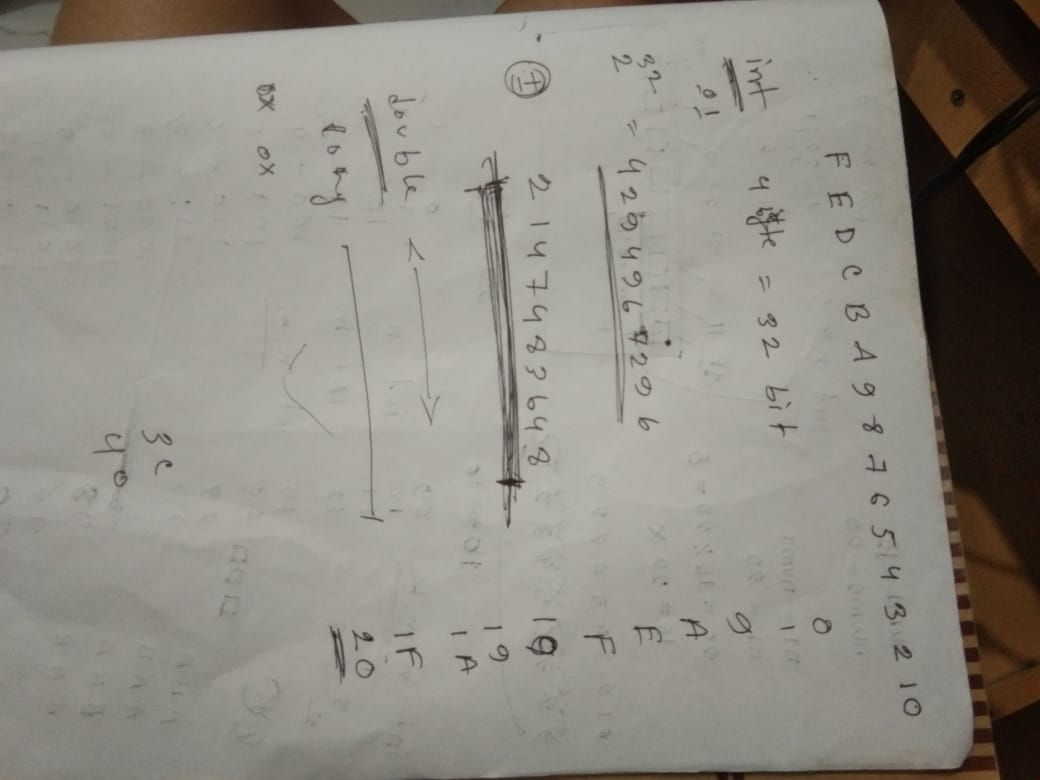 F E D C B A 9 8 7 6 5 4 3 2 1 0
int 4 byte = 32 bit
01
2^32 = 4294967296
± 2147483648
double
long
0x 0x
0
1
9
A
E
F
10
19
1A
1F
20
3C
40